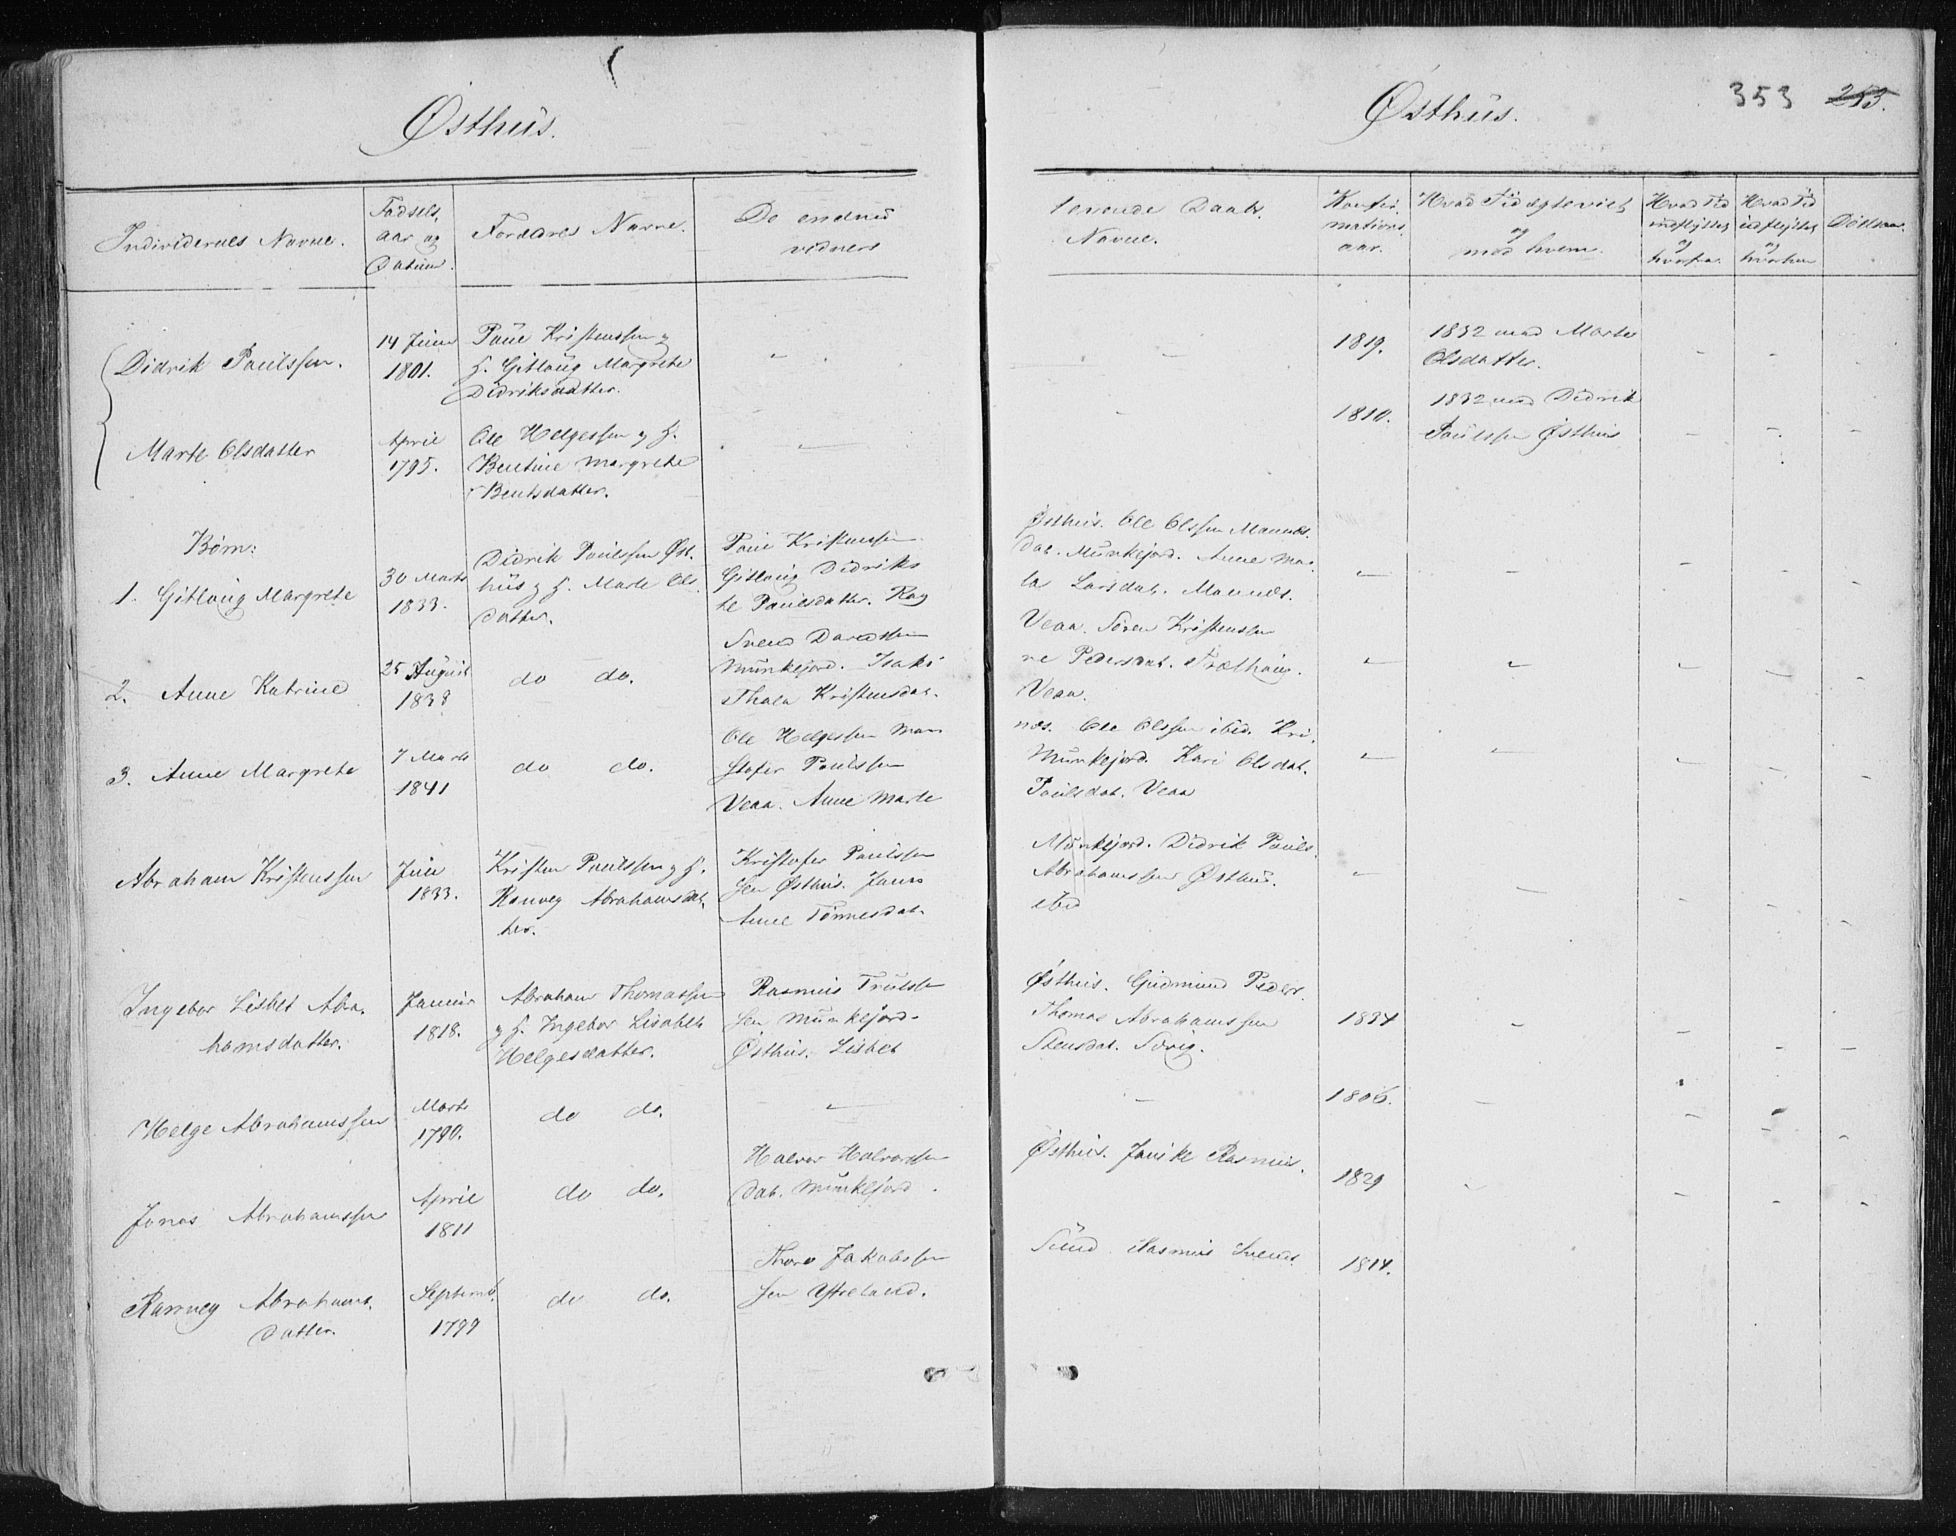 Østhus.
Individernes Navne.
Fødsels,
aar og
Datum.
Forældres Navne.
De endnu
vidners
Didrik Paulssen.
14 Juni
1801.
Paul Kristenssen og
H. Gitloug Margrete
Didriksdatter.
Marte Olsdatter
April
1795.
Ole Helgessen og H.
Bentine Margrete
Bentsdatter.
Børn:
1. Gitloug Margrete
30 Marts
1833.
Didrik Paulssen Øst,
hus og H. Marte Ols,
datter.
Paul Kristenssen
Gitloug Didriks
te Paulsdatter. Rag
2. Anne Katrine
25 August
1838
do do.
Svend Davidssen
Munkejord. Isaks
Thala Kristensdat.
3. Anne Margrete
7 Marts
1841
do do.
Ole Helgessen Man
stofer Paulssen
Veaa. Anne Marte
Abraham Kristenssen
Juli
1833.
Kristen Paulssen og H.
Ranveg Abrahamsdat,
ter.
Kristofer Paulssen
sen Østhus. Jonas
Anne Tønnesdat.
Ingebor Lisbet Abra,
hamsdatter.
Januar
1818.
Abraham Thomassen
og H. Ingebor Lisabeth
Helgesdatter.
Rasmus Trulssen
sen Munkejord.
Østhus. Lisbet
Helge Abrahamssen
Marts
1790.
do do.
Jonas Abrahamssen
April
1811
do do.
Halvor Halvorssen
dat. Munkejord.
Ranveg Abrahams,
datter.
Septemb.
1799
do do.
Thore Jakobssen
sen Ytreland.
Østhus.
353 253.
levende Daabs.
Navne.
Konfir,
mations,
aar.
Hvad Tid ægteviet
og
med hvem.
Hvad Tid
indflyttet
og
hvorfra.
Hvad Tid
udflyttet
og
hvorhen
Dødsaar.
1819.
1832 med Marte
Olsdatter.
1810.
1832 med Didrik
Paulssen Østhus
Østhus. Ole Olssen Mannes.
dat. Munkejord. Anne Mar,
ta Larsdat. Mannes.
Veaa. Søren Kristenssen
ne Pedersdat. Trælhaug.
Veaa.
nes. Ole Olssen ibid. Kri,
Munkejord. Kari Olsdat.
Paulsdat. Veaa
Munkejord. Didrik Pauls,
Abrahamssen Østhus.
ibid
Østhus. Gudmund Peder,
Thomas Abrahamssen
Stensdat. Sørig.
1834
1806.
Østhus. Janike Rasmus,
1829
Sund. Rasmus Svends
1814.